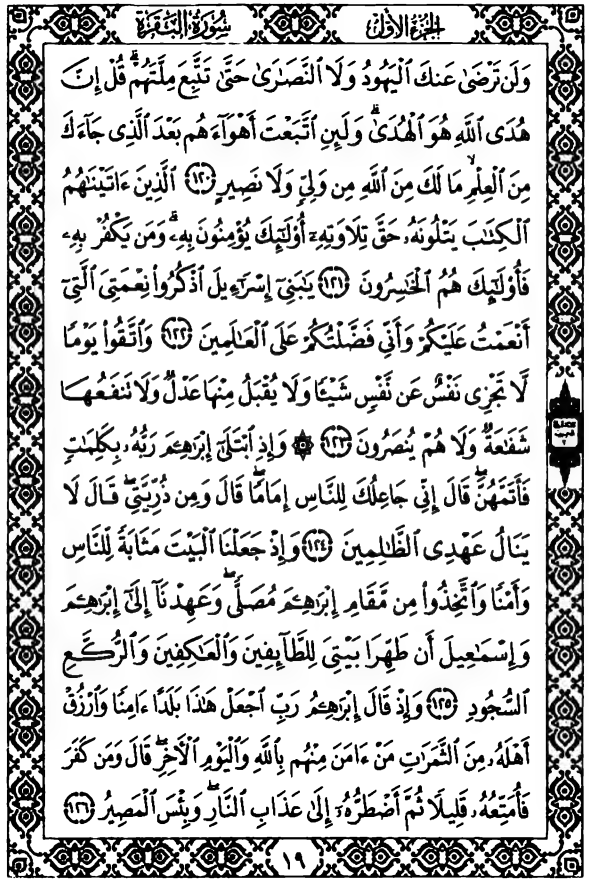 الجزء الأول
سورة البقرة
وَلَن تَرْضَىٰ عَنكَ ٱلْيَهُودُ وَلَا ٱلنَّصَٰرَىٰ حَتَّىٰ تَتَّبِعَ مِلَّتَهُمْ ۗ قُلْ إِنَّ
هُدَى ٱللَّهِ هُوَ ٱلْهُدَىٰ ۗ وَلَئِنِ ٱتَّبَعْتَ أَهْوَآءَهُم بَعْدَ ٱلَّذِى جَآءَكَ
مِنَ ٱلْعِلْمِ ۙ مَا لَكَ مِنَ ٱللَّهِ مِن وَلِىٍّ وَلَا نَصِيرٍ ١٢٠ ٱلَّذِينَ ءَاتَيْنَٰهُمُ
ٱلْكِتَٰبَ يَتْلُونَهُۥ حَقَّ تِلَاوَتِهِۦٓ أُو۟لَٰٓئِكَ يُؤْمِنُونَ بِهِۦ ۗ وَمَن يَكْفُرْ بِهِۦ
فَأُو۟لَٰٓئِكَ هُمُ ٱلْخَٰسِرُونَ ١٢١ يَٰبَنِىٓ إِسْرَٰٓءِيلَ ٱذْكُرُوا۟ نِعْمَتِىَ ٱلَّتِىٓ
أَنْعَمْتُ عَلَيْكُمْ وَأَنِّى فَضَّلْتُكُمْ عَلَى ٱلْعَٰلَمِينَ ١٢٢ وَٱتَّقُوا۟ يَوْمًا
لَّا تَجْزِى نَفْسٌ عَن نَّفْسٍ شَيْـًٔا وَلَا يُقْبَلُ مِنْهَا عَدْلٌ وَلَا تَنفَعُهَا
شَفَٰعَةٌ وَلَا هُمْ يُنصَرُونَ ١٢٣ ۞ وَإِذِ ٱبْتَلَىٰٓ إِبْرَٰهِـۧمَ رَبُّهُۥ بِكَلِمَٰتٍ
فَأَتَمَّهُنَّ ۖ قَالَ إِنِّى جَاعِلُكَ لِلنَّاسِ إِمَامًا ۖ قَالَ وَمِن ذُرِّيَّتِى ۖ قَالَ لَا
يَنَالُ عَهْدِى ٱلظَّٰلِمِينَ ١٢٤ وَإِذْ جَعَلْنَا ٱلْبَيْتَ مَثَابَةً لِّلنَّاسِ
وَأَمْنًا وَٱتَّخِذُوا۟ مِن مَّقَامِ إِبْرَٰهِـۧمَ مُصَلًّى ۖ وَعَهِدْنَآ إِلَىٰٓ إِبْرَٰهِـۧمَ
وَإِسْمَٰعِيلَ أَن طَهِّرَا بَيْتِىَ لِلطَّآئِفِينَ وَٱلْعَٰكِفِينَ وَٱلرُّكَّعِ
ٱلسُّجُودِ ١٢٥ وَإِذْ قَالَ إِبْرَٰهِـۧمُ رَبِّ ٱجْعَلْ هَٰذَا بَلَدًا ءَامِنًا وَٱرْزُقْ
أَهْلَهُۥ مِنَ ٱلثَّمَرَٰتِ مَنْ ءَامَنَ مِنْهُم بِٱللَّهِ وَٱلْيَوْمِ ٱلْـَٔاخِرِ ۖ قَالَ وَمَن كَفَرَ
فَأُمَتِّعُهُۥ قَلِيلًا ثُمَّ أَضْطَرُّهُۥٓ إِلَىٰ عَذَابِ ٱلنَّارِ ۖ وَبِئْسَ ٱلْمَصِيرُ ١٢٦
١٩